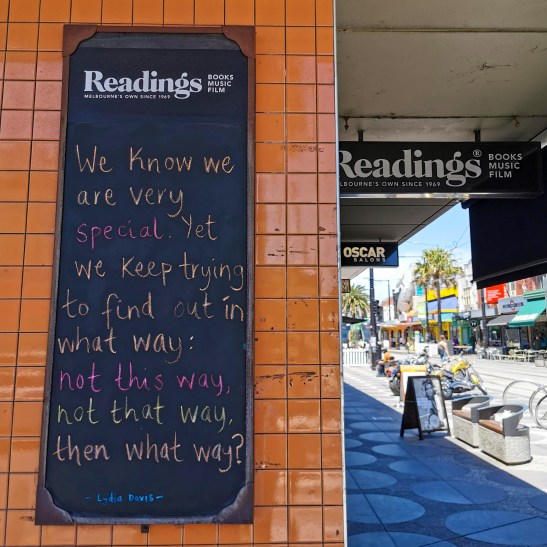 Readings BOOKS
MUSIC
FILM
MELBOURNE'S OWN SINCE 1969
We Know we
are very
special. Yet
we Keep trying
to find out in
what way:
not this way,
not that way,
then what way?
- Lydia Davis -
Readings® BOOKS
MUSIC
FILM
MELBOURNE'S OWN SINCE 1969
OSCAR
SALONS